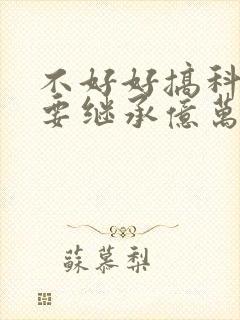 不好好搞科
要继承億萬
蘇慕梨